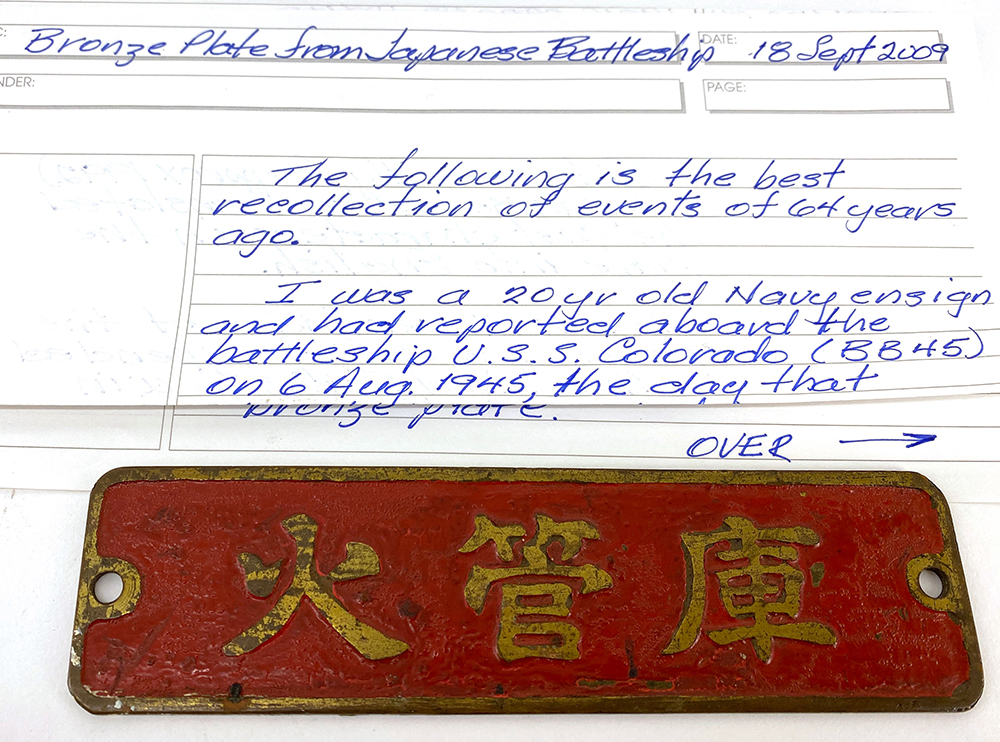 C: Bronze Plate from Japanese Battleship DATE: 18 Sept 2009
NDER: PAGE:
The following is the best
recollection of events of 64 years
ago.
I was a 20 yr old Navy ensign
and had reported aboard the
battleship U.S.S. Colorado (BB45)
on 6 Aug. 1945, the day that
bronze plate.
OVER →
火管庫